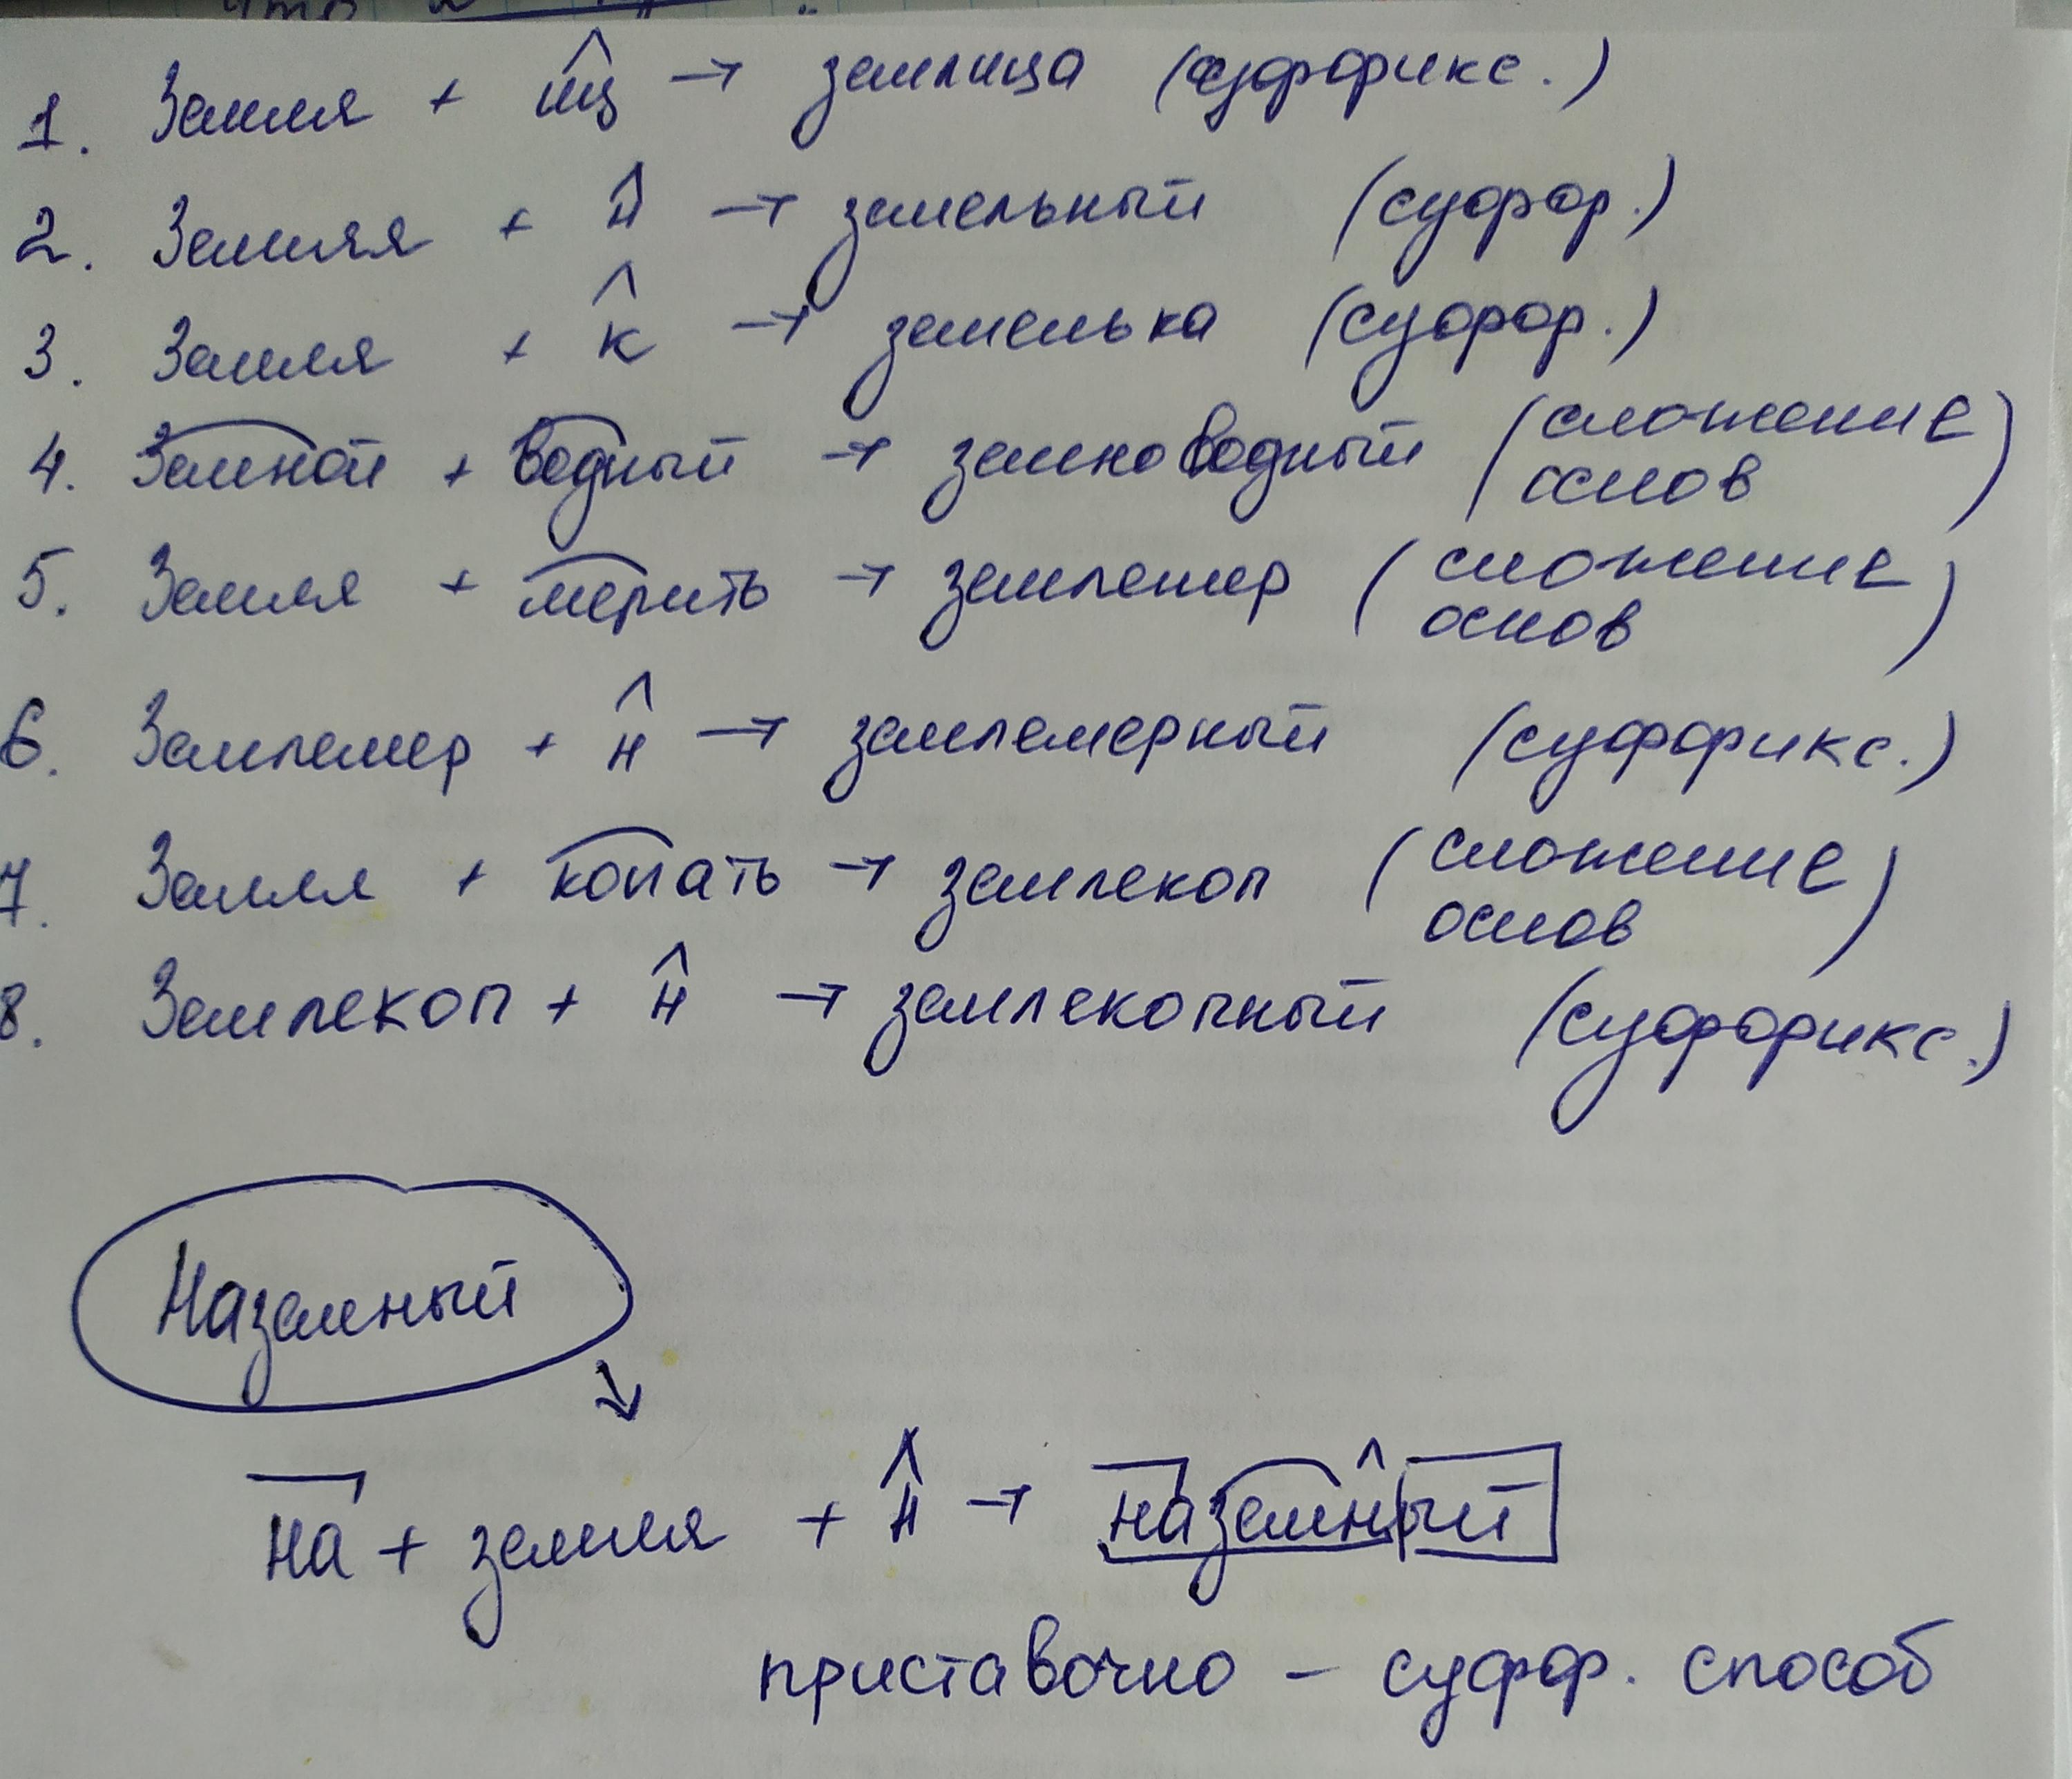 что
1. Земля + иц → землица (суффикс.)
2. Земля + н → земельный (суфф.)
3. Земля + к → земелька (суфф.)
4. Земной + водный → земноводный (сложение
основ)
5. Земля + мерить → землемер (сложение
основ)
6. Землемер + н → землемерный (суффикс.)
7. Земля + копать → землекоп (сложение
основ)
8. Землекоп + н → землекопный (суффикс.)
Наземный
на + земля + н → наземный
приставочно - суфф. способ